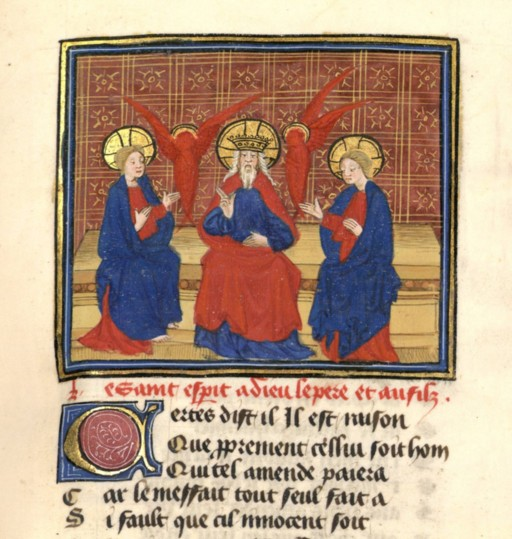 Le Saint esp̄it a dieu le pere et au filz.
Certes dist il Il est raison
Que p̱prement cellui soit hom
Qui tel amende paiera
Car le meffait tout seul fait a
Si fault que cil innocent soit